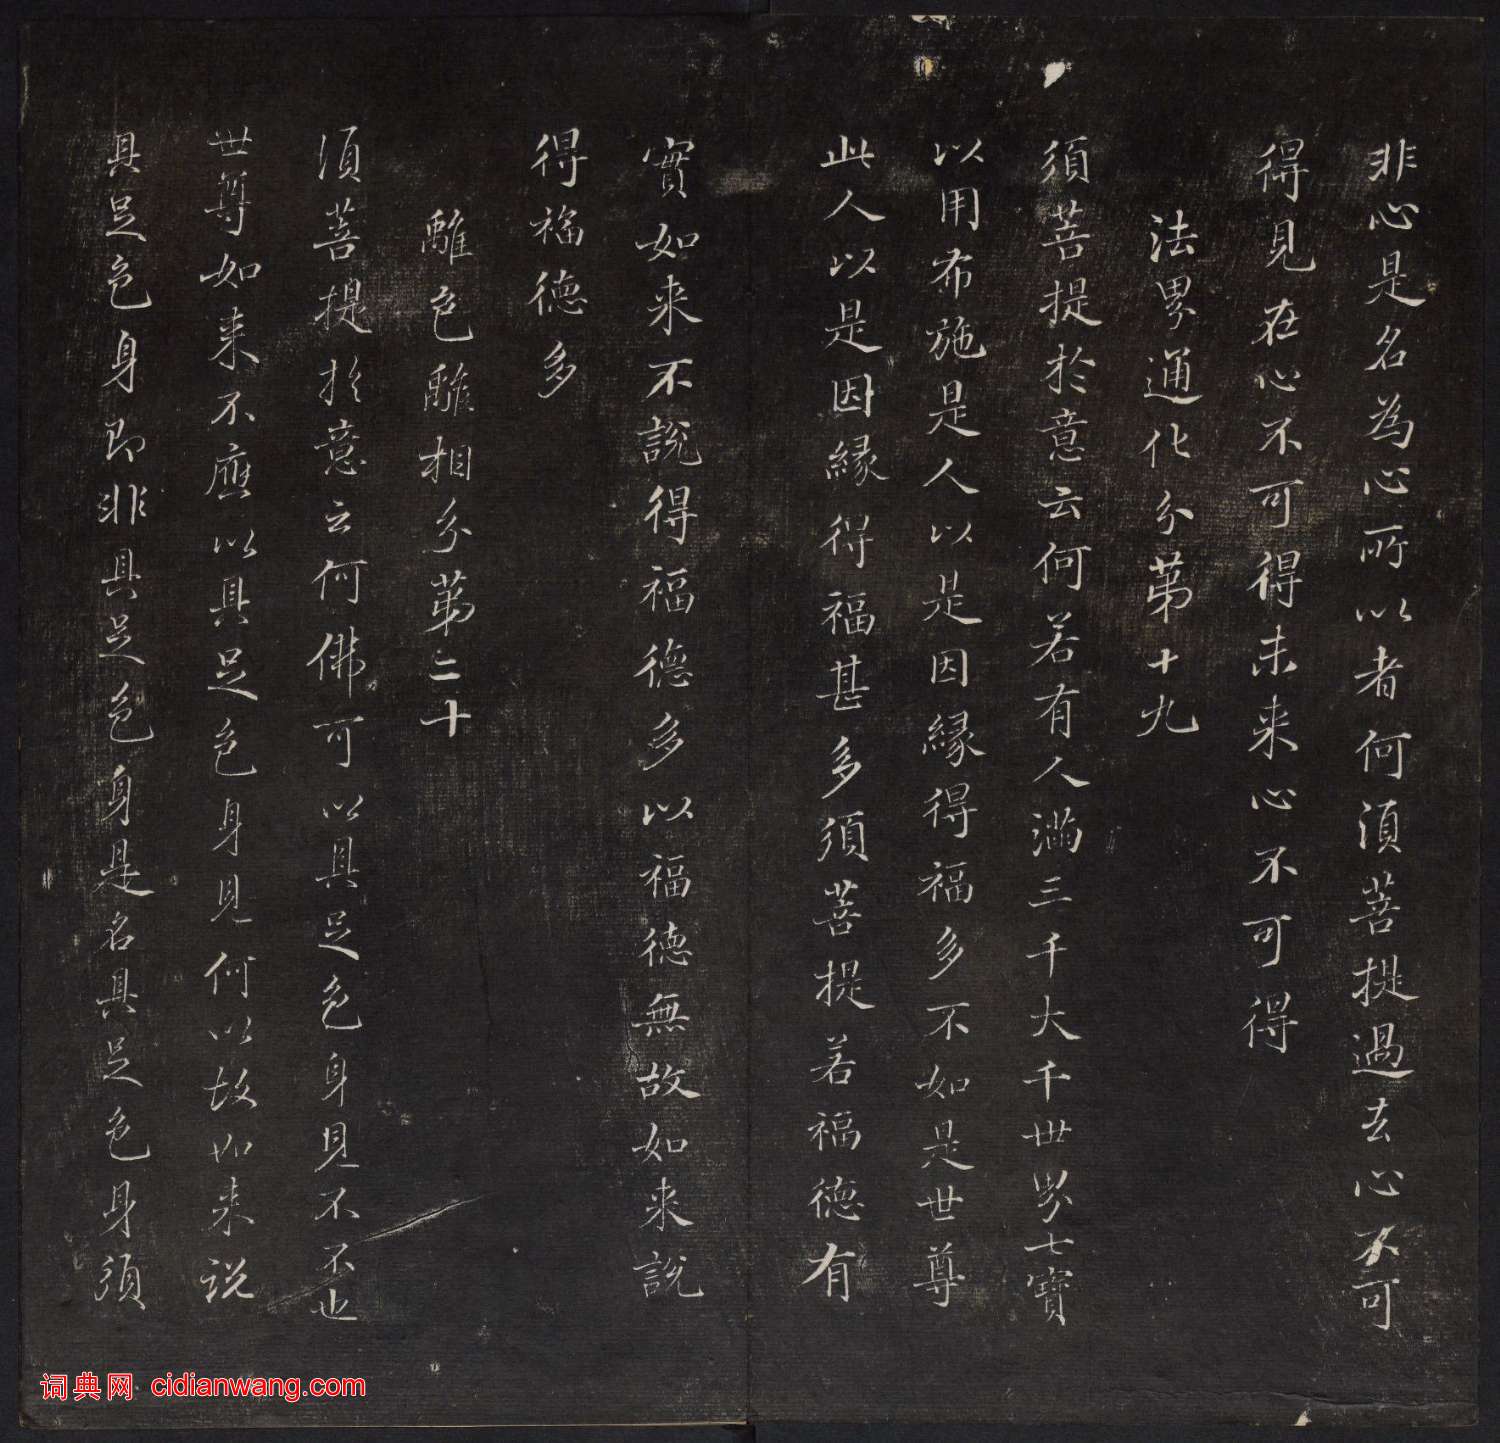 非心是名為心所以者何須菩提過去心不可
得見在心不可得未來心不可得
法界通化分第十九
須菩提於意云何若有人滿三千大千世界七寶
以用布施是人以是因緣得福多不如是世尊
此人以是因緣得福甚多須菩提若福德有
實如来不說得福德多以福德無故如来說
得福德多
離色離相分第二十
須菩提於意云何佛可以具足色身見不不也
世尊如来不應以具足色身見何以故如来说
具足色身即非具足色身是名具足色身須
词典网 cidianwang.com